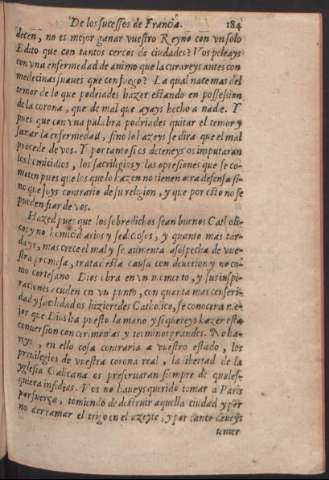 De los sucesses de Francia. 184
decen, no es mejor ganar vuestro Reyno con vn solo
Edito que con tantos cercos de ciudades? Vos peleays
con vna enfermedad de animo que la curareys antes con
medecinas suaues que con fuego? La qual nace mas del
temor de lo que podriades hazer estando en possession
de la corona, que de mal que ayays hecho a nade. Y
pues que con vna palabra podriades quitar el temor y
sanar la enfermedad, sino lo hazeys se dira que el mal
procede de vos. Y por tanto si os deteneys os imputaran
los homicidios, los sacrilegios y las opresiones que se co-
meten pues que los que lo hazen no tienen otra defensa si
no que soys contrario de su religion, y que por esto no se
pueden fiar de vos.
Hazed pues que los sobredichos sean buenos Catholi-
cos y no homicidiarios y sediciosos, y quanto mas tar-
days, mas crece el mal y se aumenta la sospecha de vue-
stra promesa, tratad esta causa con deuocion y no co-
mo cortesano Dios obra en vn momento, y sus inspi-
raciones suceden en vn punto, con quanta mas
y facilidad os hizieredes Catholico, se conocera me-
jor que Dios ha puesto la mano y si quereys hazer esta
conuersion con cerimonias y terminos grandes. No ha-
reys, en ello cosa contraria a vuestro estado, los
priuilegios de vuestra corona real, la libertad de la
yglesia Galicana os preseruaran siempre de quales-
quiera insidias. Vos no haueys querido tomar a Paris
por fuerça, temiendo de destruir aquella ciudad y por
no derramar el trigo en el azeyte, y por tanto deueys
temer